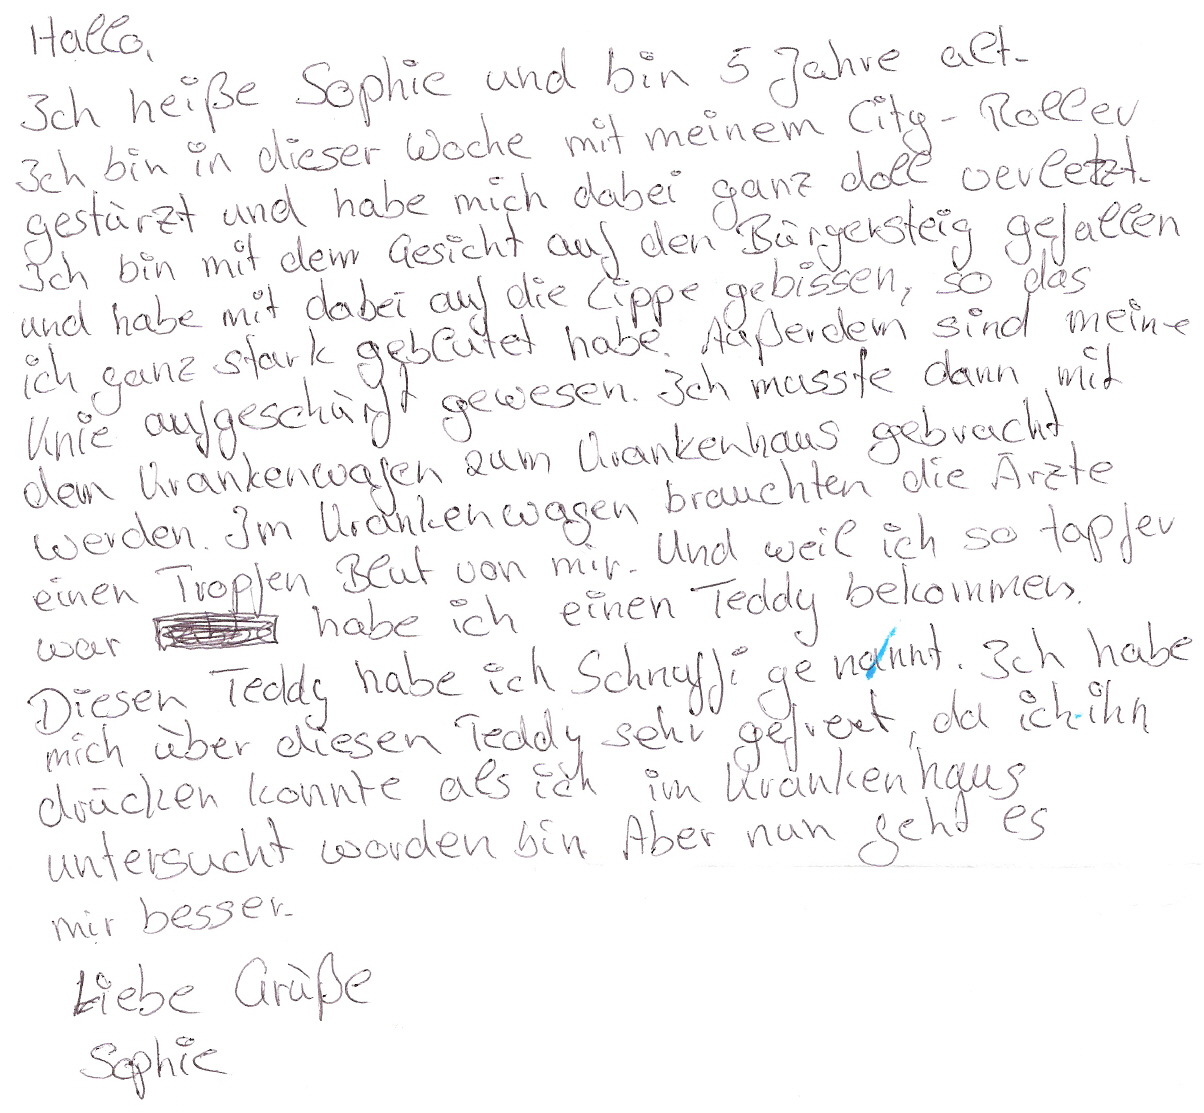 Hallo,
Ich heiße Sophie und bin 5 Jahre alt.
Ich bin in dieser Woche mit meinem City-Roller
gestürzt und habe mich dabei ganz doll verletzt.
Ich bin mit dem Gesicht auf den Bürgersteig gefallen
und habe mit dabei auf die Lippe gebissen, so das
ich ganz stark geblutet habe. Außerdem sind meine
Knie aufgeschürft gewesen. Ich musste dann mit
dem Krankenwagen zum Krankenhaus gebracht
werden. Im Krankenwagen brauchten die Ärzte
einen Tropfen Blut von mir. Und weil ich so tapfer
war habe ich einen Teddy bekommen.
Diesen Teddy habe ich Schnuffi genannt. Ich habe
mich über diesen Teddy sehr gefreut, da ich ihn
drücken konnte als ich im Krankenhaus
untersucht worden bin. Aber nun geht es
mir besser.
Liebe Grüße
Sophie